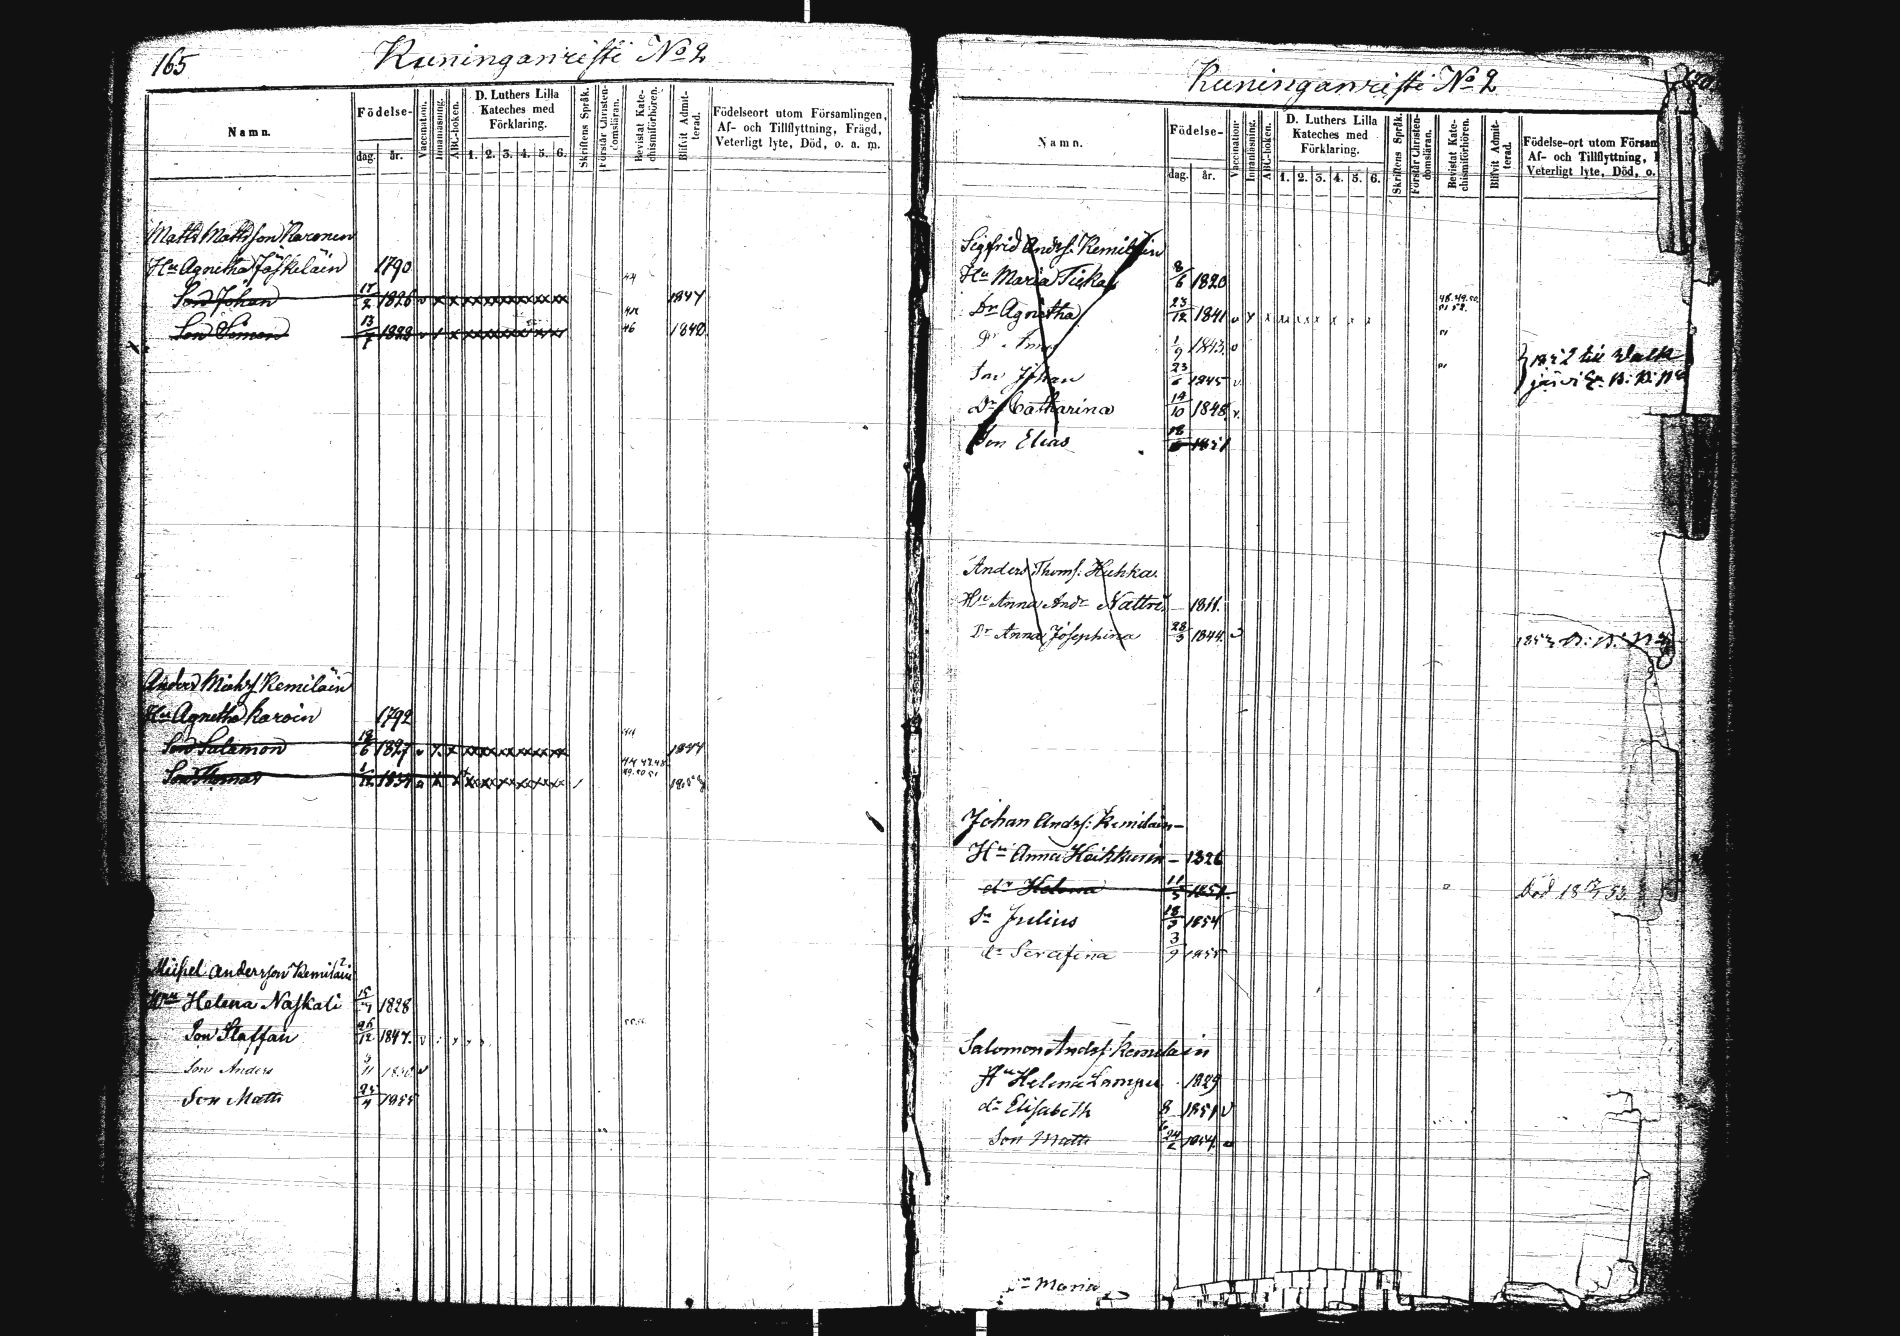 165
Kuninganristi No 2
Namn.
Födelse-
dag.
år.
Vaccination.
Innanläsning.
ABC-boken.
D. Luthers Lilla
Kateches med
Förklaring.
1. 2. 3. 4. 5. 6.
Skriftens Språk.
Förstår Christen-
domsläran.
Bevistat Kate-
chismiförhören.
Blifvit Admit-
terad.
Födelseort utom Församlingen,
Af- och Tillflyttning, Frägd,
Veterligt lyte, Död, o. a. m.
Matts Mattsson Karonen
Hu Agnetha Jäskeläin 1790
Son Johan 17/2 1826 v x x xxxxxxxxxxx 44 1847
Son Simon 13/7 1828 46 1848
Anders Michs Kemiläin
Hu Agnetha Karoin 1792
Son Salamon 18/6 1827 v x x 44 1847
Son Thomas 1/12 1834 49.50 51
Michel Andersson Kemiläin
Hru Helena Naskali 15/7 1828
Son Staffan 26/12 1847. v
Son Anders
Son Matts 1855
Kuninganristi No 2
Namn.
Födelse-
dag.
år.
Vaccination.
Innanläsning.
ABC-boken.
D. Luthers Lilla
Kateches med
Förklaring.
1. 2. 3. 4. 5. 6.
Skriftens Språk.
Förstår Christen-
domsläran.
Bevistat Kate-
chismiförhören.
Blifvit Admit-
terad.
Födelse-ort utom Försam
Af- och Tillflyttning,
Veterligt lyte, Död, o.
Sigfrid Andrs: Kemiläin
Hu Maria Tiekas 8/6 1820
Dr Agnetha 23/12 1841 v x x 48.49.50.
51 52.
Dr 1/9 1843. v
Son Johan 23/6 1845 v
Dr Catharina 14/10 1848 v.
Son Elias 18 1851
Anders Thoms: Huhka.
Hu Anna Andr Nattri 1811.
Dr Anna Josephina 28/3 1844. v
Johan Andrs: Kemiläin
Hu Anna Heikkunin 1826
dr Helena 11/5 1851. Död
Sn Julius 18/3 1854
dr Serafina 3/9 1855
Salomon Andrs: Kemiläin
Hu Helena Lamppu 1829
dr Elisabeth 8 1851 v
Son Matts 24/2 1854
Maria